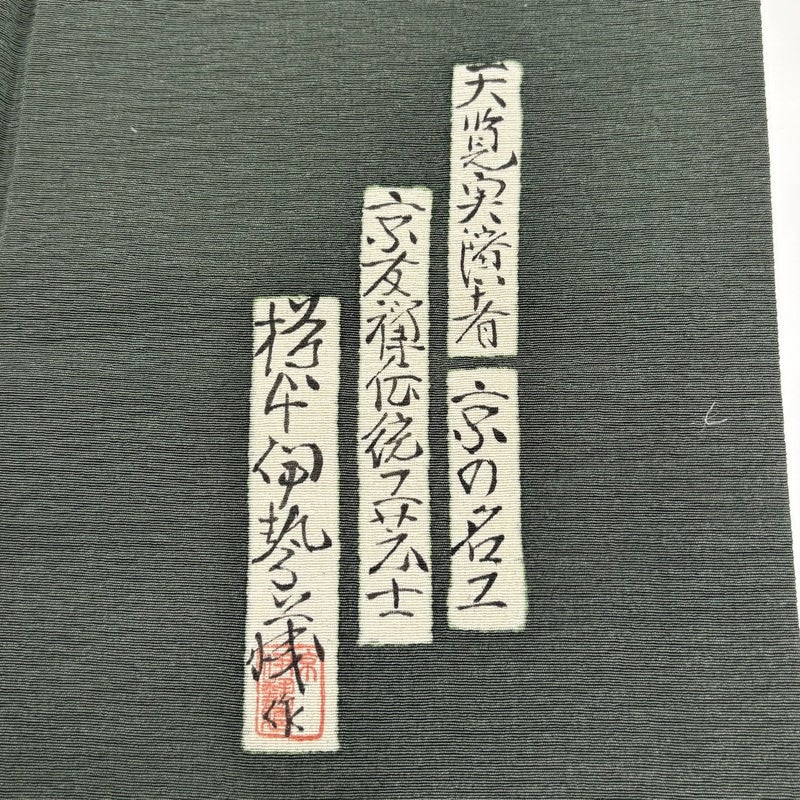 天覧実演者
京の名工
京友禅伝統工芸士
伊勢 作